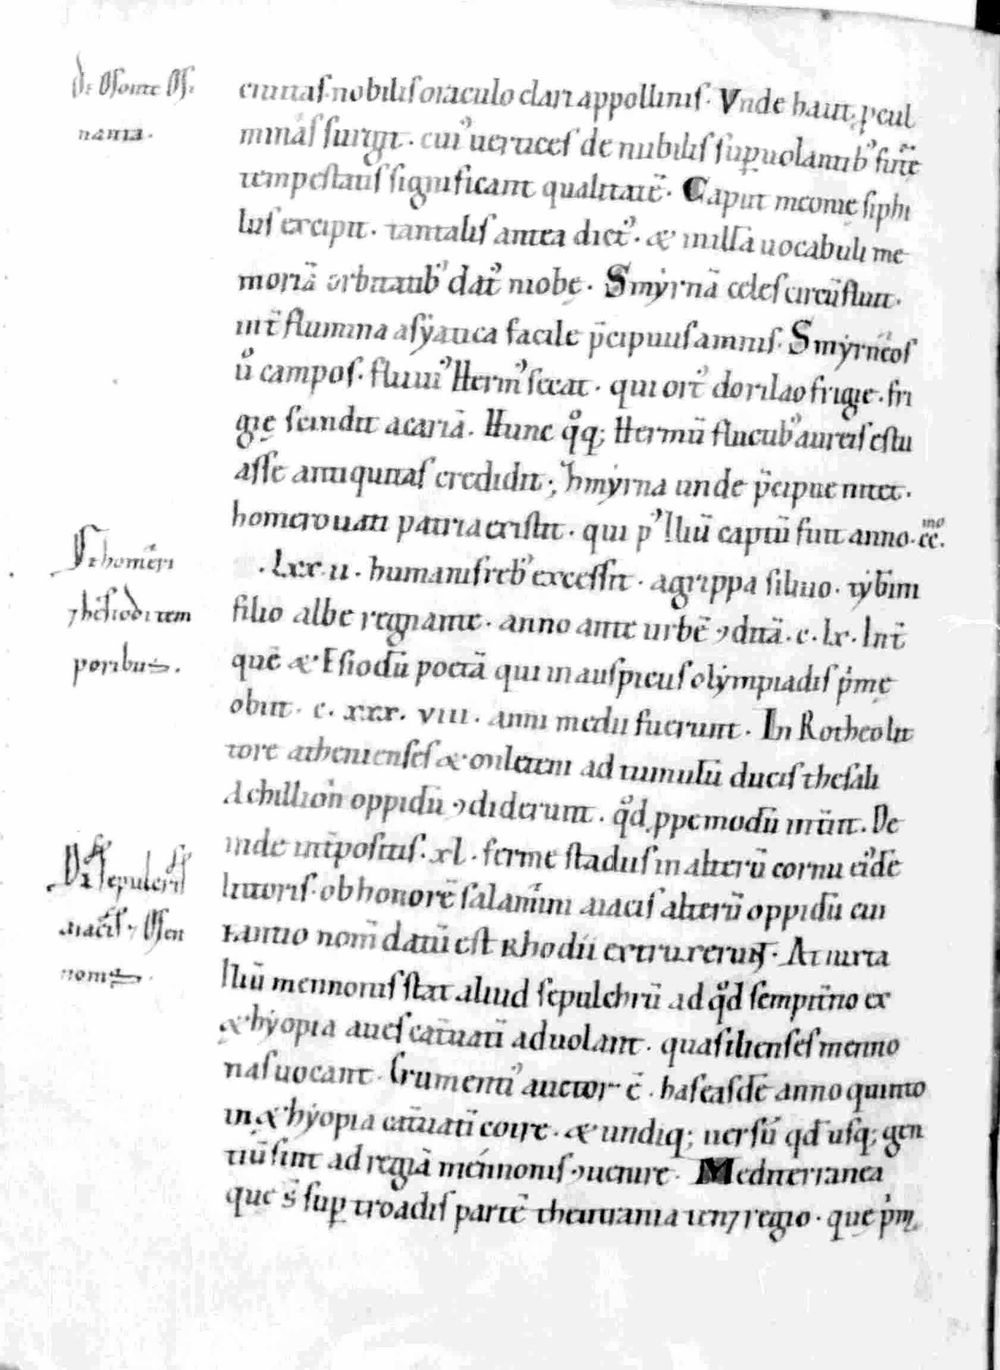 ciuitas· nobilis oraculo clari appollinis· Vnde haut ꝓcul
minas surgit· cuiꝰ uertices de nubilis suꝑuolantibꝰ
tempestatis significant qualitatē· Caput meonię siphi
lus excipit· tantalis antea dictꝰ· & missa uocabuli me
moriā orbitatibꝰ dat̄ niobę· Smẏrnā celes circūfluit·
int̄ flumina asẏatica facile p̄cipuus amnis· Smẏrneos
ů campos· fluuiꝰ Hermꝰ secat· qui ortꝰ dorilao frigie· fri
gię scindit acariā· Hunc qͦq; Hermū fluctibꝰ aureis estu
asse antiquitas credidit; hmẏrna unde p̄cipue nitet·
homero uati patria existit· qui pꝰ Iliū captū fuit anno· cc̄·
·lxx·ii· humanis rebꝰ excessit· agrippa siluio· tẏb̄ini
filio albe regnante· anno ante urbē ꝯditā· c· lx· Int̄
quē & Esiodū poetā qui in auspiciis olẏmpiadis p̍mę
obiit· c· xxx· viii· anni medii fuerunt· In Rotheo lit
tore athenienses & onleteni ad tumulū ducis thesali
Achillion oppidū ꝯdiderunt· qͦd ꝓpemodū · De
inde int̄positis· xl· ferme stadiis in alterū cornu eiꝰdē
littoris· ob honorē salamini aiacis alterū oppidū cui
tantio nom̄ datū est Rhodii extruxerunt· At iuxta
Iliū mennonis stat aliud sepulchrū ad qͦd sempit̄no ex
&hẏopia aues cat̄uati aduolant· quas ilienses menno
nas uocant· Crumentiꝰ auctor ē· has easdē anno quinto
in &hẏopia cat̄uati coire· & undiq; uersū qd̄ usq; gen
tiū sint ad regiā mennonis ꝯuenire· Mediterranea
que s̄ suꝑ troadis partē theutrania ten⁊ regio· que p̍m
De
nania·
De homeri
⁊ hesiodi tem
poribus·
De sepulcris
aiacis ⁊
nonis·